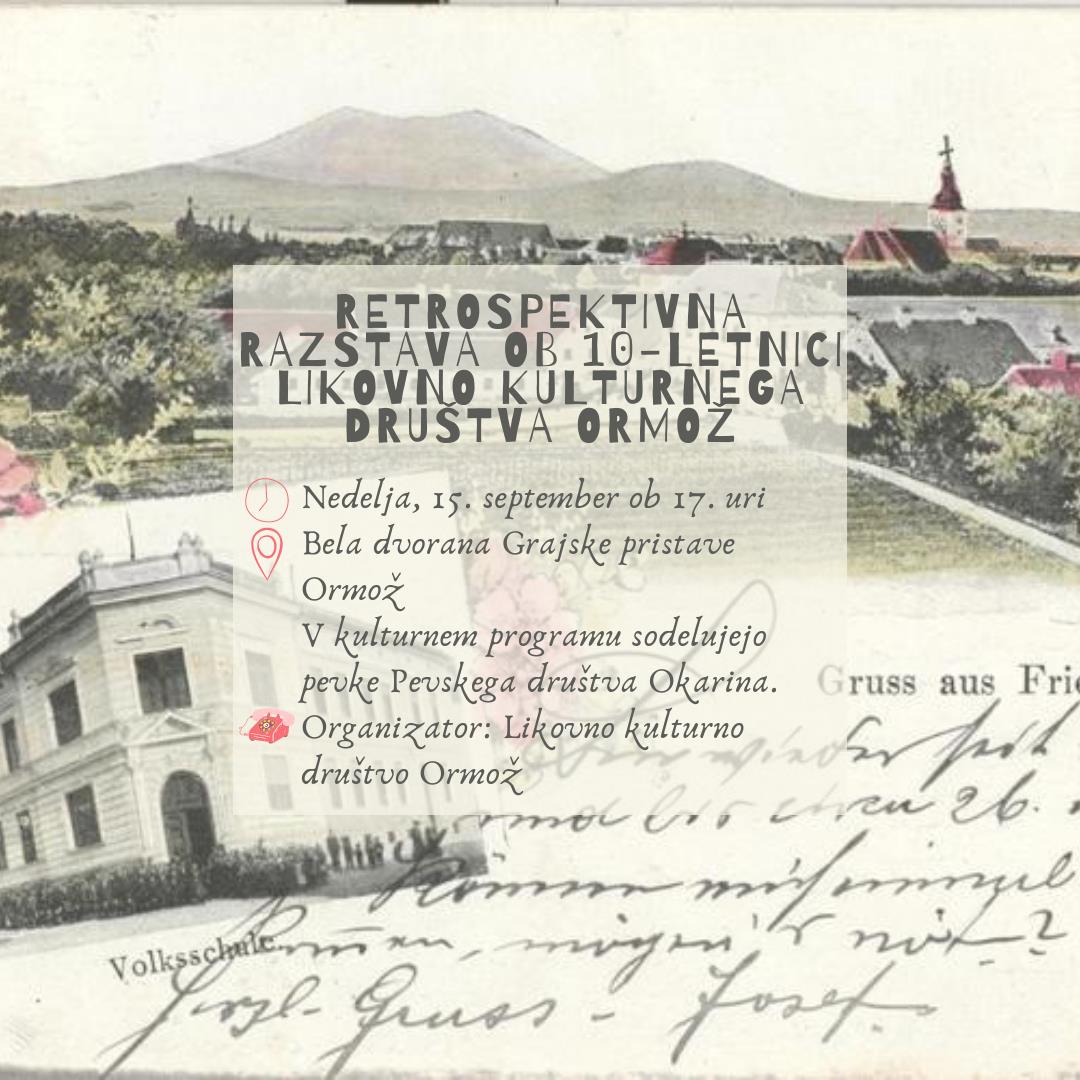 RETROSPEKTIVNA
RAZSTAVA OB 10-LETNICI
LIKOVNO KULTURNEGA
DRUŠTVA ORMOŽ
Nedelja, 15. september ob 17. uri
Bela dvorana Grajske pristave
Ormož
V kulturnem programu sodelujejo
pevke Pevskega društva Okarina.
Organizator: Likovno kulturno
društvo Ormož
Gruss aus
wieder
26.
Kommen, mögen's ?
Volksschule.
Herzl. Gruss - Josef.